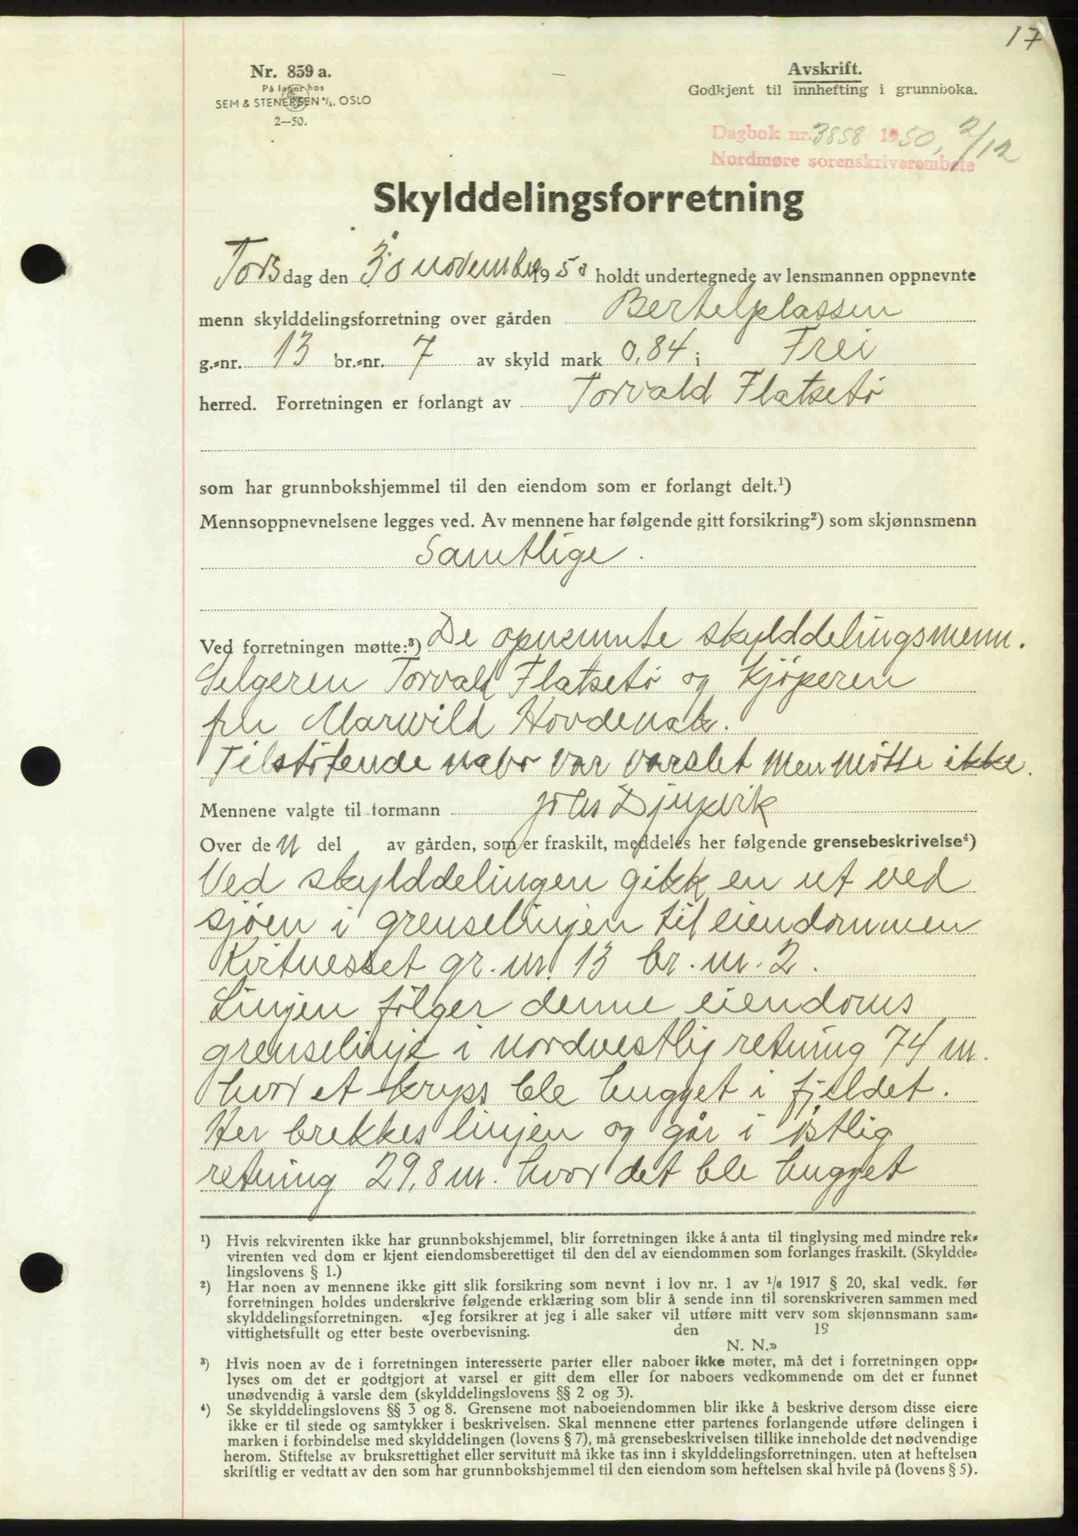 17
Nr. 859 a.
På lager hos
SEM & STENERSEN A/S, OSLO
2—50.
Avskrift.
Godkjent til innhefting i grunnboka.
Dagbok nr. 3858 1950, 2/12
Nordmøre sorenskriverembete
Skylddelingsforretning
Torsdag den 30 november 1950 holdt undertegnede av lensmannen oppnevnte
menn skylddelingsforretning over gården Bertelplassen
g.-nr. 13 br.-nr. 7 av skyld mark 0,84 i Frei
herred. Forretningen er forlangt av Torvald Flatsetø
som har grunnbokshjemmel til den eiendom som er forlangt delt.¹)
Mennsoppnevnelsene legges ved. Av mennene har følgende gitt forsikring²) som skjønnsmenn
Samtlige.
Ved forretningen møtte:³) De opnemnte skylddelingsmenn.
Selgeren Torvald Flatsetø og kjøperen
frk Marwild Hovdenak.
Tilstøtende nabo var varslet men møtte ikke.
Mennene valgte til formann Johs Djupvik
Over den del av gården, som er fraskilt, meddeles her følgende grensebeskrivelse⁴)
Ved skylddelingen gikk en ut ved
sjøen i grenselinjen til eiendommen
Kvitneset gr. nr. 13 br. nr. 2.
Linjen følger denne eiendoms
grenselinje i nordvestlig retning 74 m.
hvor et kryss ble hugget i fjeldet.
Her brekkes linjen og går i østlig
retning 29,8 m. hvor det ble hugget
¹) Hvis rekvirenten ikke har grunnbokshjemmel, blir forretningen ikke å anta til tinglysing med mindre rek-
virenten ved dom er kjent eiendomsberettiget til den del av eiendommen som forlanges fraskilt. (Skyldde-
lingslovens § 1.)
²) Har noen av mennene ikke gitt slik forsikring som nevnt i lov nr. 1 av 1/6 1917 § 20, skal vedk. før
forretningen holdes underskrive følgende erklæring som blir å sende inn til sorenskriveren sammen med
skylddelingsforretningen. «Jeg forsikrer at jeg i alle saker vil utføre mitt verv som skjønnsmann sam-
vittighetsfullt og etter beste overbevisning. den 19
N. N.»
³) Hvis noen av de i forretningen interesserte parter eller naboer ikke møter, må det i forretningen opp-
lyses om det er godtgjort at varsel er gitt dem eller for naboers vedkommende om det er funnet
unødvendig å varsle dem (skylddelingslovens §§ 2 og 3).
⁴) Se skylddelingslovens §§ 3 og 8. Grensene mot naboeiendommen blir ikke å beskrive dersom disse eiere
ikke er til stede og samtykker i beskrivelsen. Skal mennene etter partenes forlangende utføre delingen i
marken i forbindelse med skylddelingen (lovens § 7), må grensebeskrivelsen tillike inneholde det nødvendige
herom. Stiftelse av bruksrettighet eller servitutt må ikke tas inn i skylddelingsforretningen, uten at heftelsen
skriftlig er vedtatt av den som har grunnbokshjemmel til den eiendom som heftelsen skal hvile på (lovens § 5).